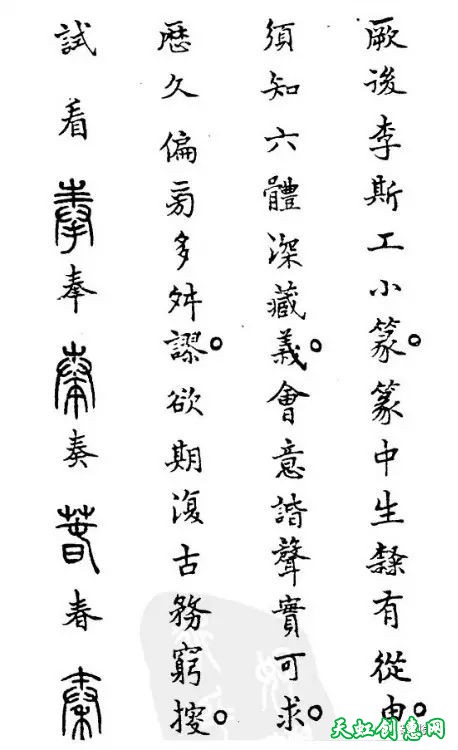 厥後李斯工小篆。篆中生隸有從由。
須知六體深藏義。會意諧聲實可求。
歷久偏旁多舛謬。欲期復古務窮搜。
試看奉奉奏奏春春秦
天虹创意网